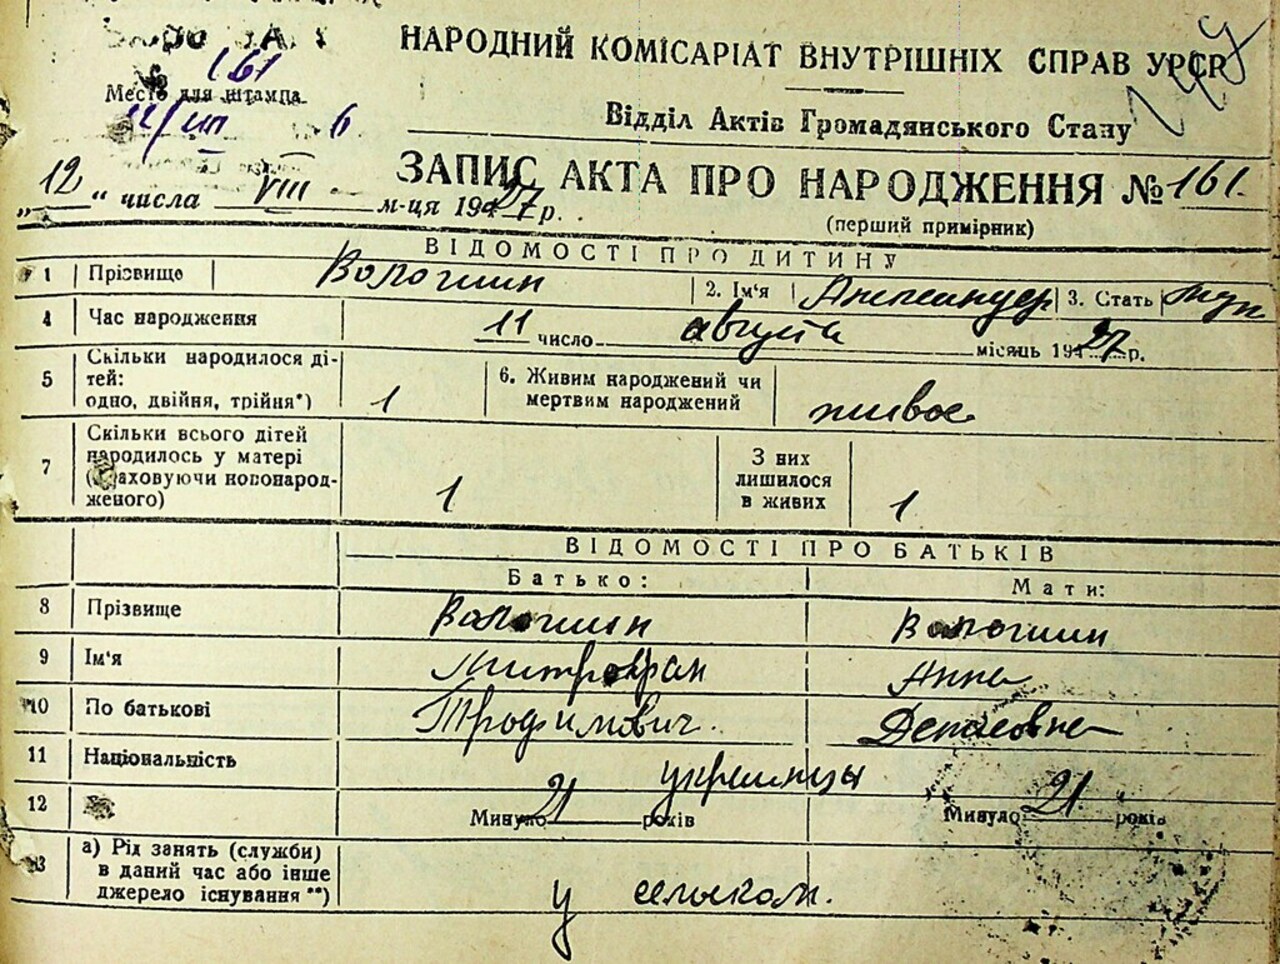 НАРОДНИЙ КОМІСАРІАТ ВНУТРІШНІХ СПРАВ УРСР
№ 161
Место для штампа
Відділ Актів Громадянського Стану
ЗАПИС АКТА ПРО НАРОДЖЕННЯ № 161.
„12“ числа VIII м-ця 1927 р.
(перший примірник)
ВІДОМОСТІ ПРО ДИТИНУ
1 Прізвище Волошин 2. Ім'я Александр 3. Стать муж
4 Час народження 11 число августа місяць 1927 р.
5 Скільки народилося ді-
тей:
одно, двійня, трійня*) 1
6. Живим народжений чи
мертвим народжений живое
7 Скільки всього дітей
народилось у матері
(враховуючи новонарод-
женого) 1
З них
лишилося
в живих 1
ВІДОМОСТІ ПРО БАТЬКІВ
Батько: Мати:
8 Прізвище Волошин Волошин
9 Ім'я Митрофан Анна
10 По батькові Трофимович Денисовна
11 Національність украинцы
12 Минуло 21 років Минуло 21 років
13 а) Рід занять (служби)
в даний час або інше
джерело існування **) у